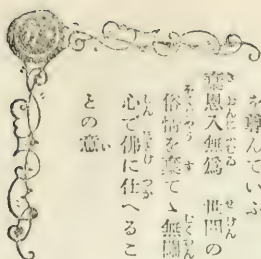 を尊んでいふ
棄恩入無爲 世間の
俗情を棄てゝ無關
心で佛に仕へるこ
との意